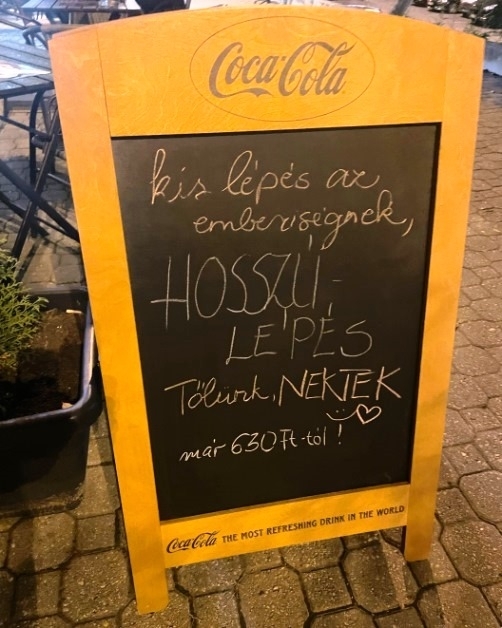 Coca-Cola
kis lépés az
emberiségnek,
HOSSZÚ-
LÉPÉS
Tőlünk, NEKTEK
már 630 Ft-tól !
Coca-Cola THE MOST REFRESHING DRINK IN THE WORLD